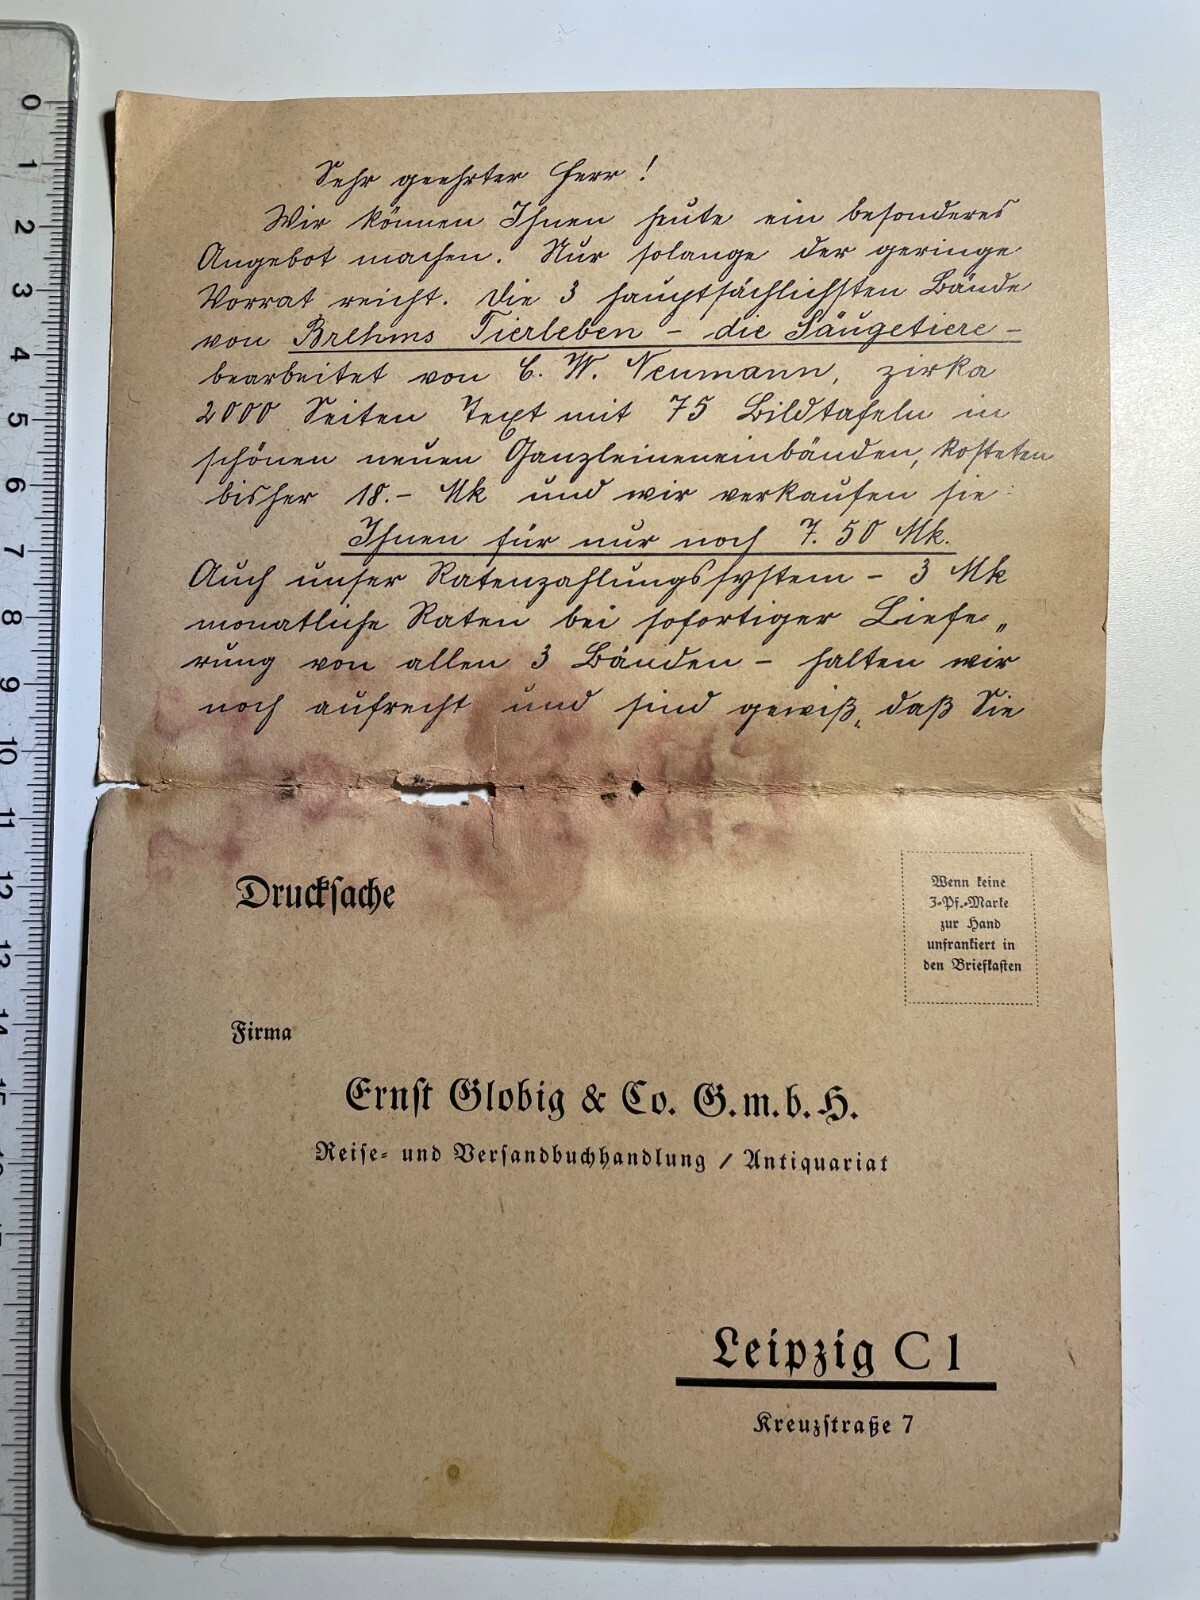 Sehr geehrter Herr!
Wir können Ihnen heute ein besonderes
Angebot machen. Nur solange der geringe
Vorrat reicht. Die 3 hauptsächlichsten Bände
von Brehms Tierleben - die Säugetiere -
bearbeitet von C. W. Neumann, zirka
2000 Seiten Text mit 75 Bildtafeln in
schönen neuen Ganzleineneinbänden, kosteten
bisher 18.- Mk und wir verkaufen sie:
Ihnen für nur noch 7.50 Mk.
Auch unser Ratenzahlungssystem - 3 Mk
monatliche Raten bei sofortiger Liefe„
rung von allen 3 Bänden - halten wir
noch aufrecht und sind gewiß, daß Sie
Drucksache
Wenn keine
3-Pf.-Marke
zur Hand
unfrankiert in
den Briefkasten
Firma
Ernst Globig & Co. G.m.b.H.
Reise- und Versandbuchhandlung / Antiquariat
Leipzig C 1
Kreuzstraße 7
0
1
2
3
4
5
6
7
8
9
10
11
12
13
14
15